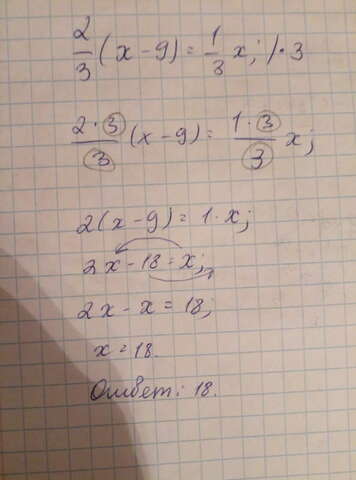 2/3 (x - 9) = 1/3 x; /·3
2·3/3 (x - 9) = 1·3/3 x;
2(x - 9) = 1·x;
2x - 18 = x;
2x - x = 18;
x = 18.
Ответ: 18.